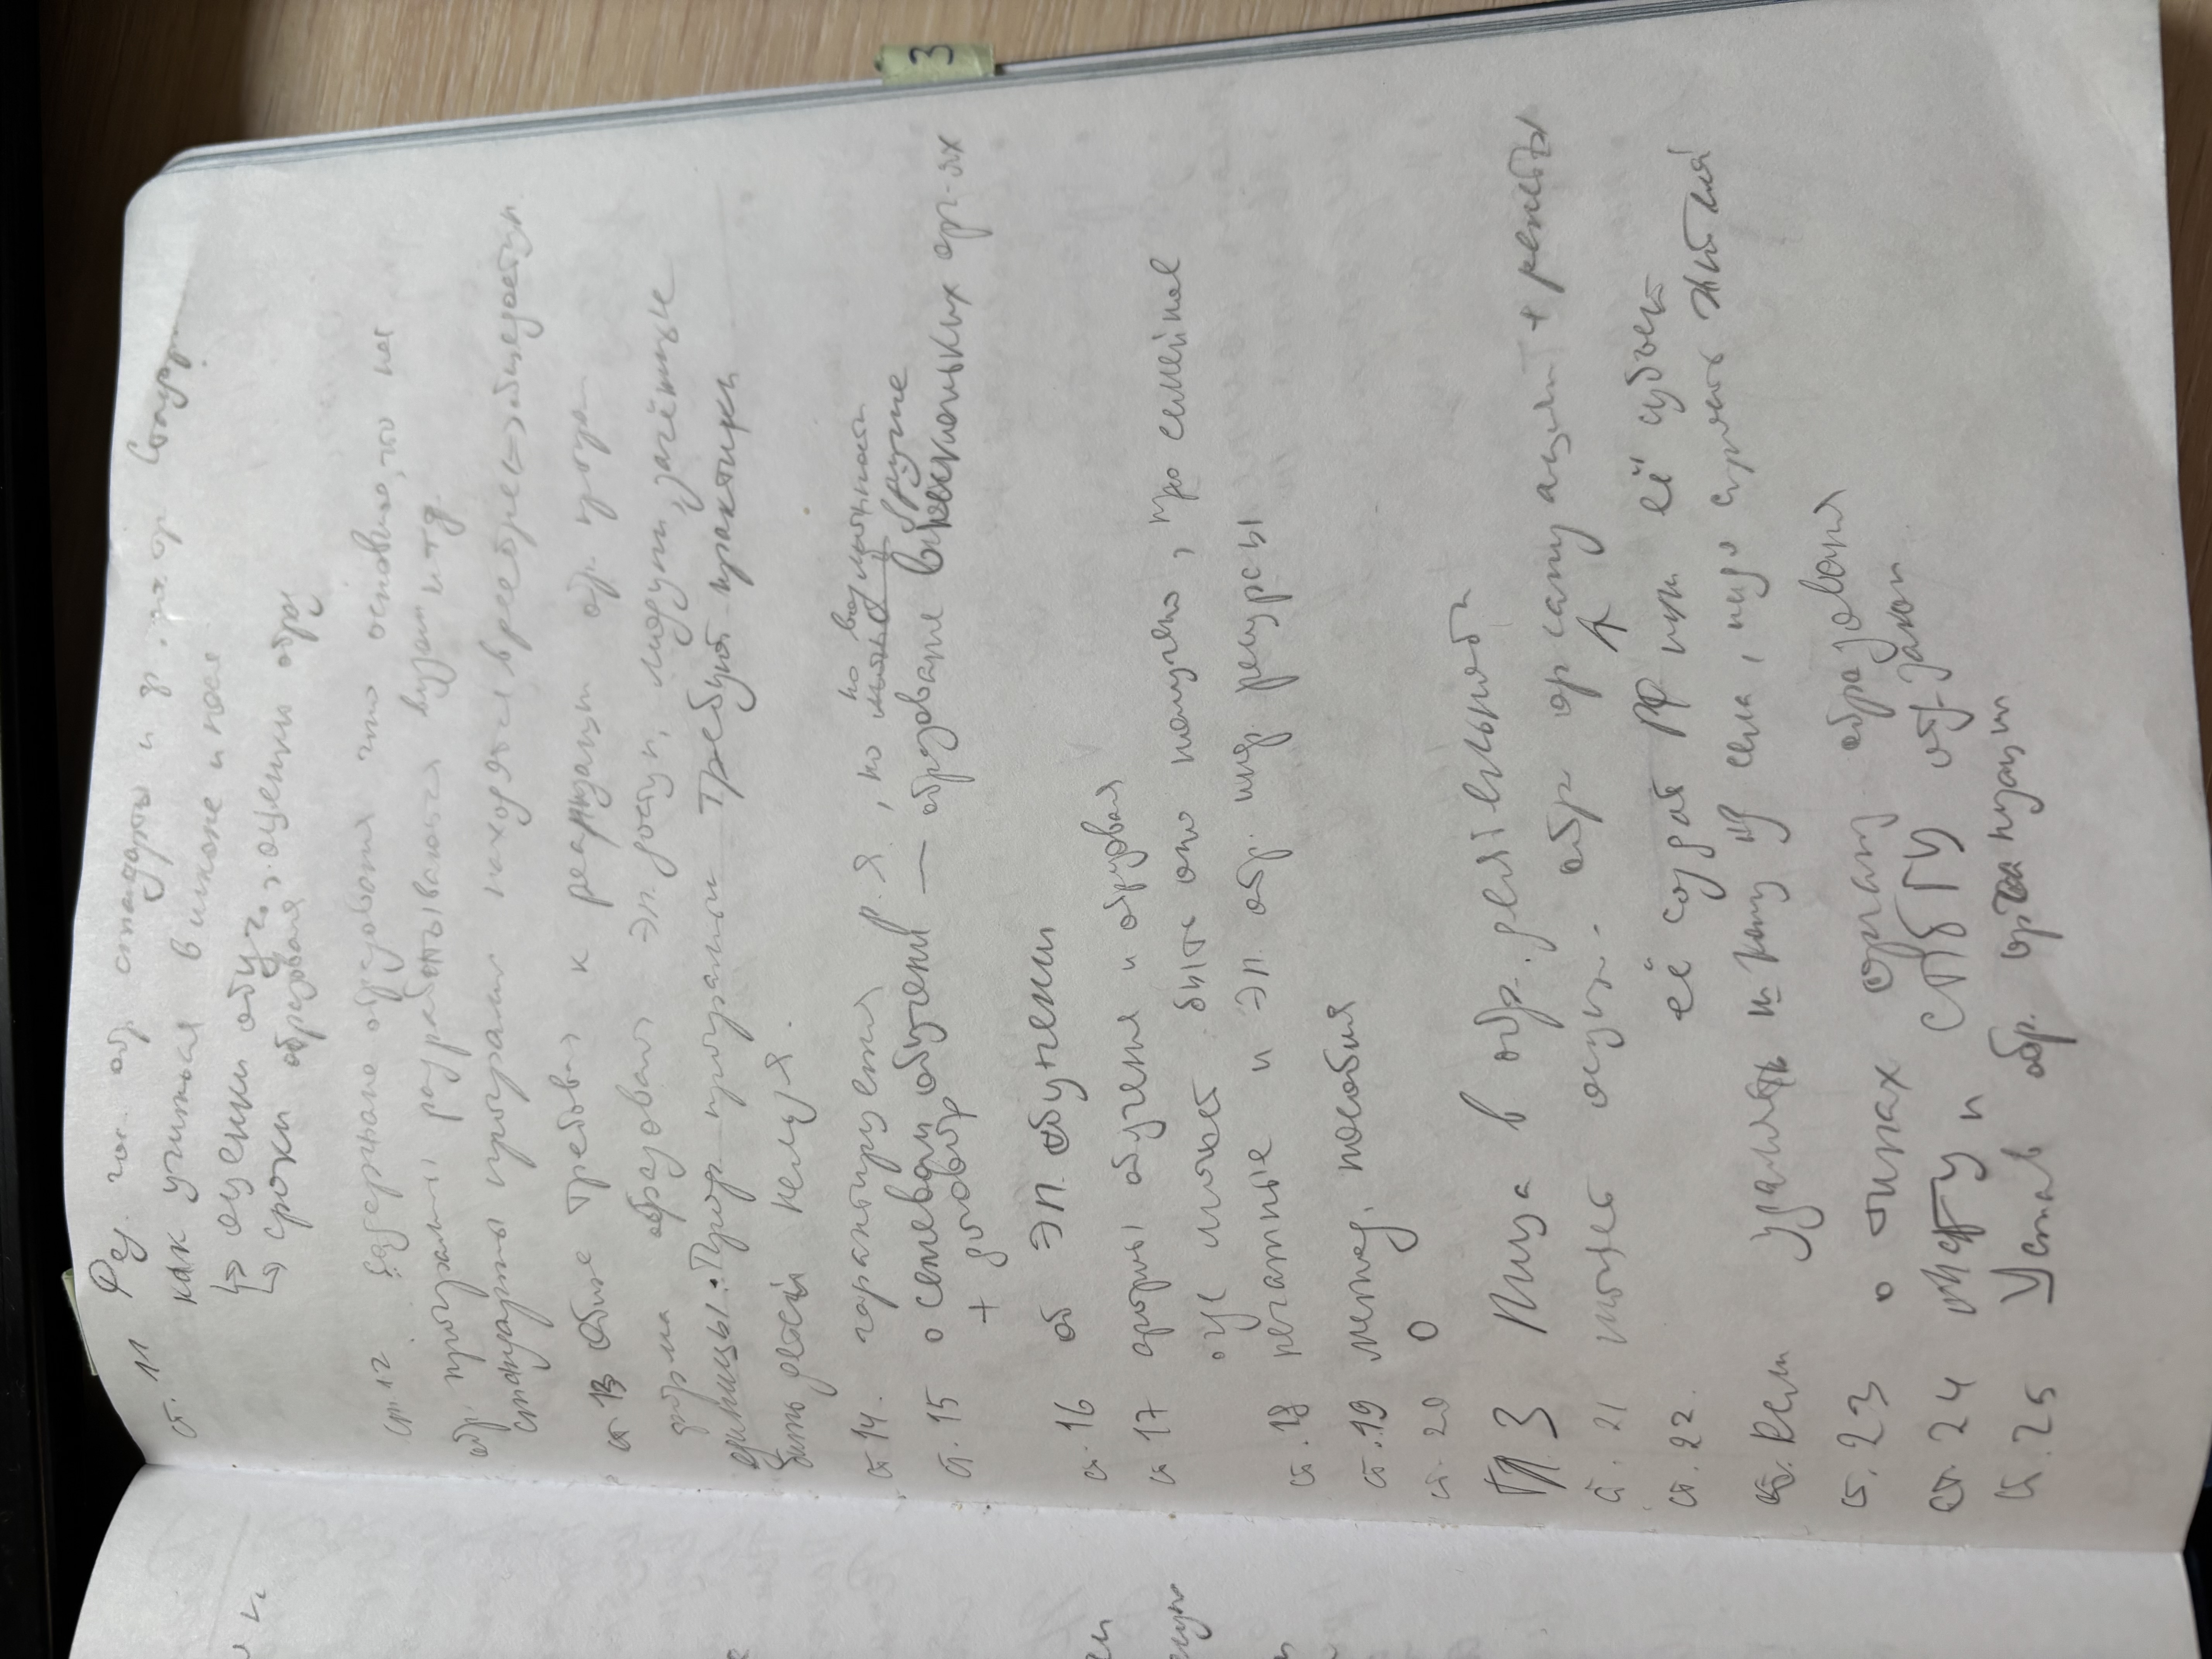 ст. 11 Фед. гос. обр. стандарты и ф. гос. тр.
как учиться в школе и после
↳ оценки обуч., оценки обр
↳ сроки образования
ст. 12 Содержание образования что основное, что нет
обр. программы разрабатываются вузом и т д.
стандарты программ находятся в реестре (=> общедоступн
ст 13 Общие требован к реализации обр. програм
форма образования Эл. доступ, модули, зачётные
единицы. Проф. программы требуют практики
бить детей нельзя.
ст 14. гарантируется р. я., но по возможности другие
ст. 15 о сетевом обучении — образование в нескольких орг-ях
+ договор
ст. 16 об Эл. обучении
ст 17 формы обучения и образования
где может быть оно получено, про семейное
ст. 18 печатные и Эл. обр. инф. ресурсы
ст. 19 метод. пособия
ст. 20 О
Гл 3 Лица в обр. деятельности
ст. 21 может осущ. обр организация + репеты
↑
ст. 22. её создаёт РФ или её субъект
ст. Если удалять школу из села, надо спросить жителей
ст. 23 о типах организ образования
ст. 24 МГУ и СПбГУ отд. закон
ст. 25 Устав обр. организации
3